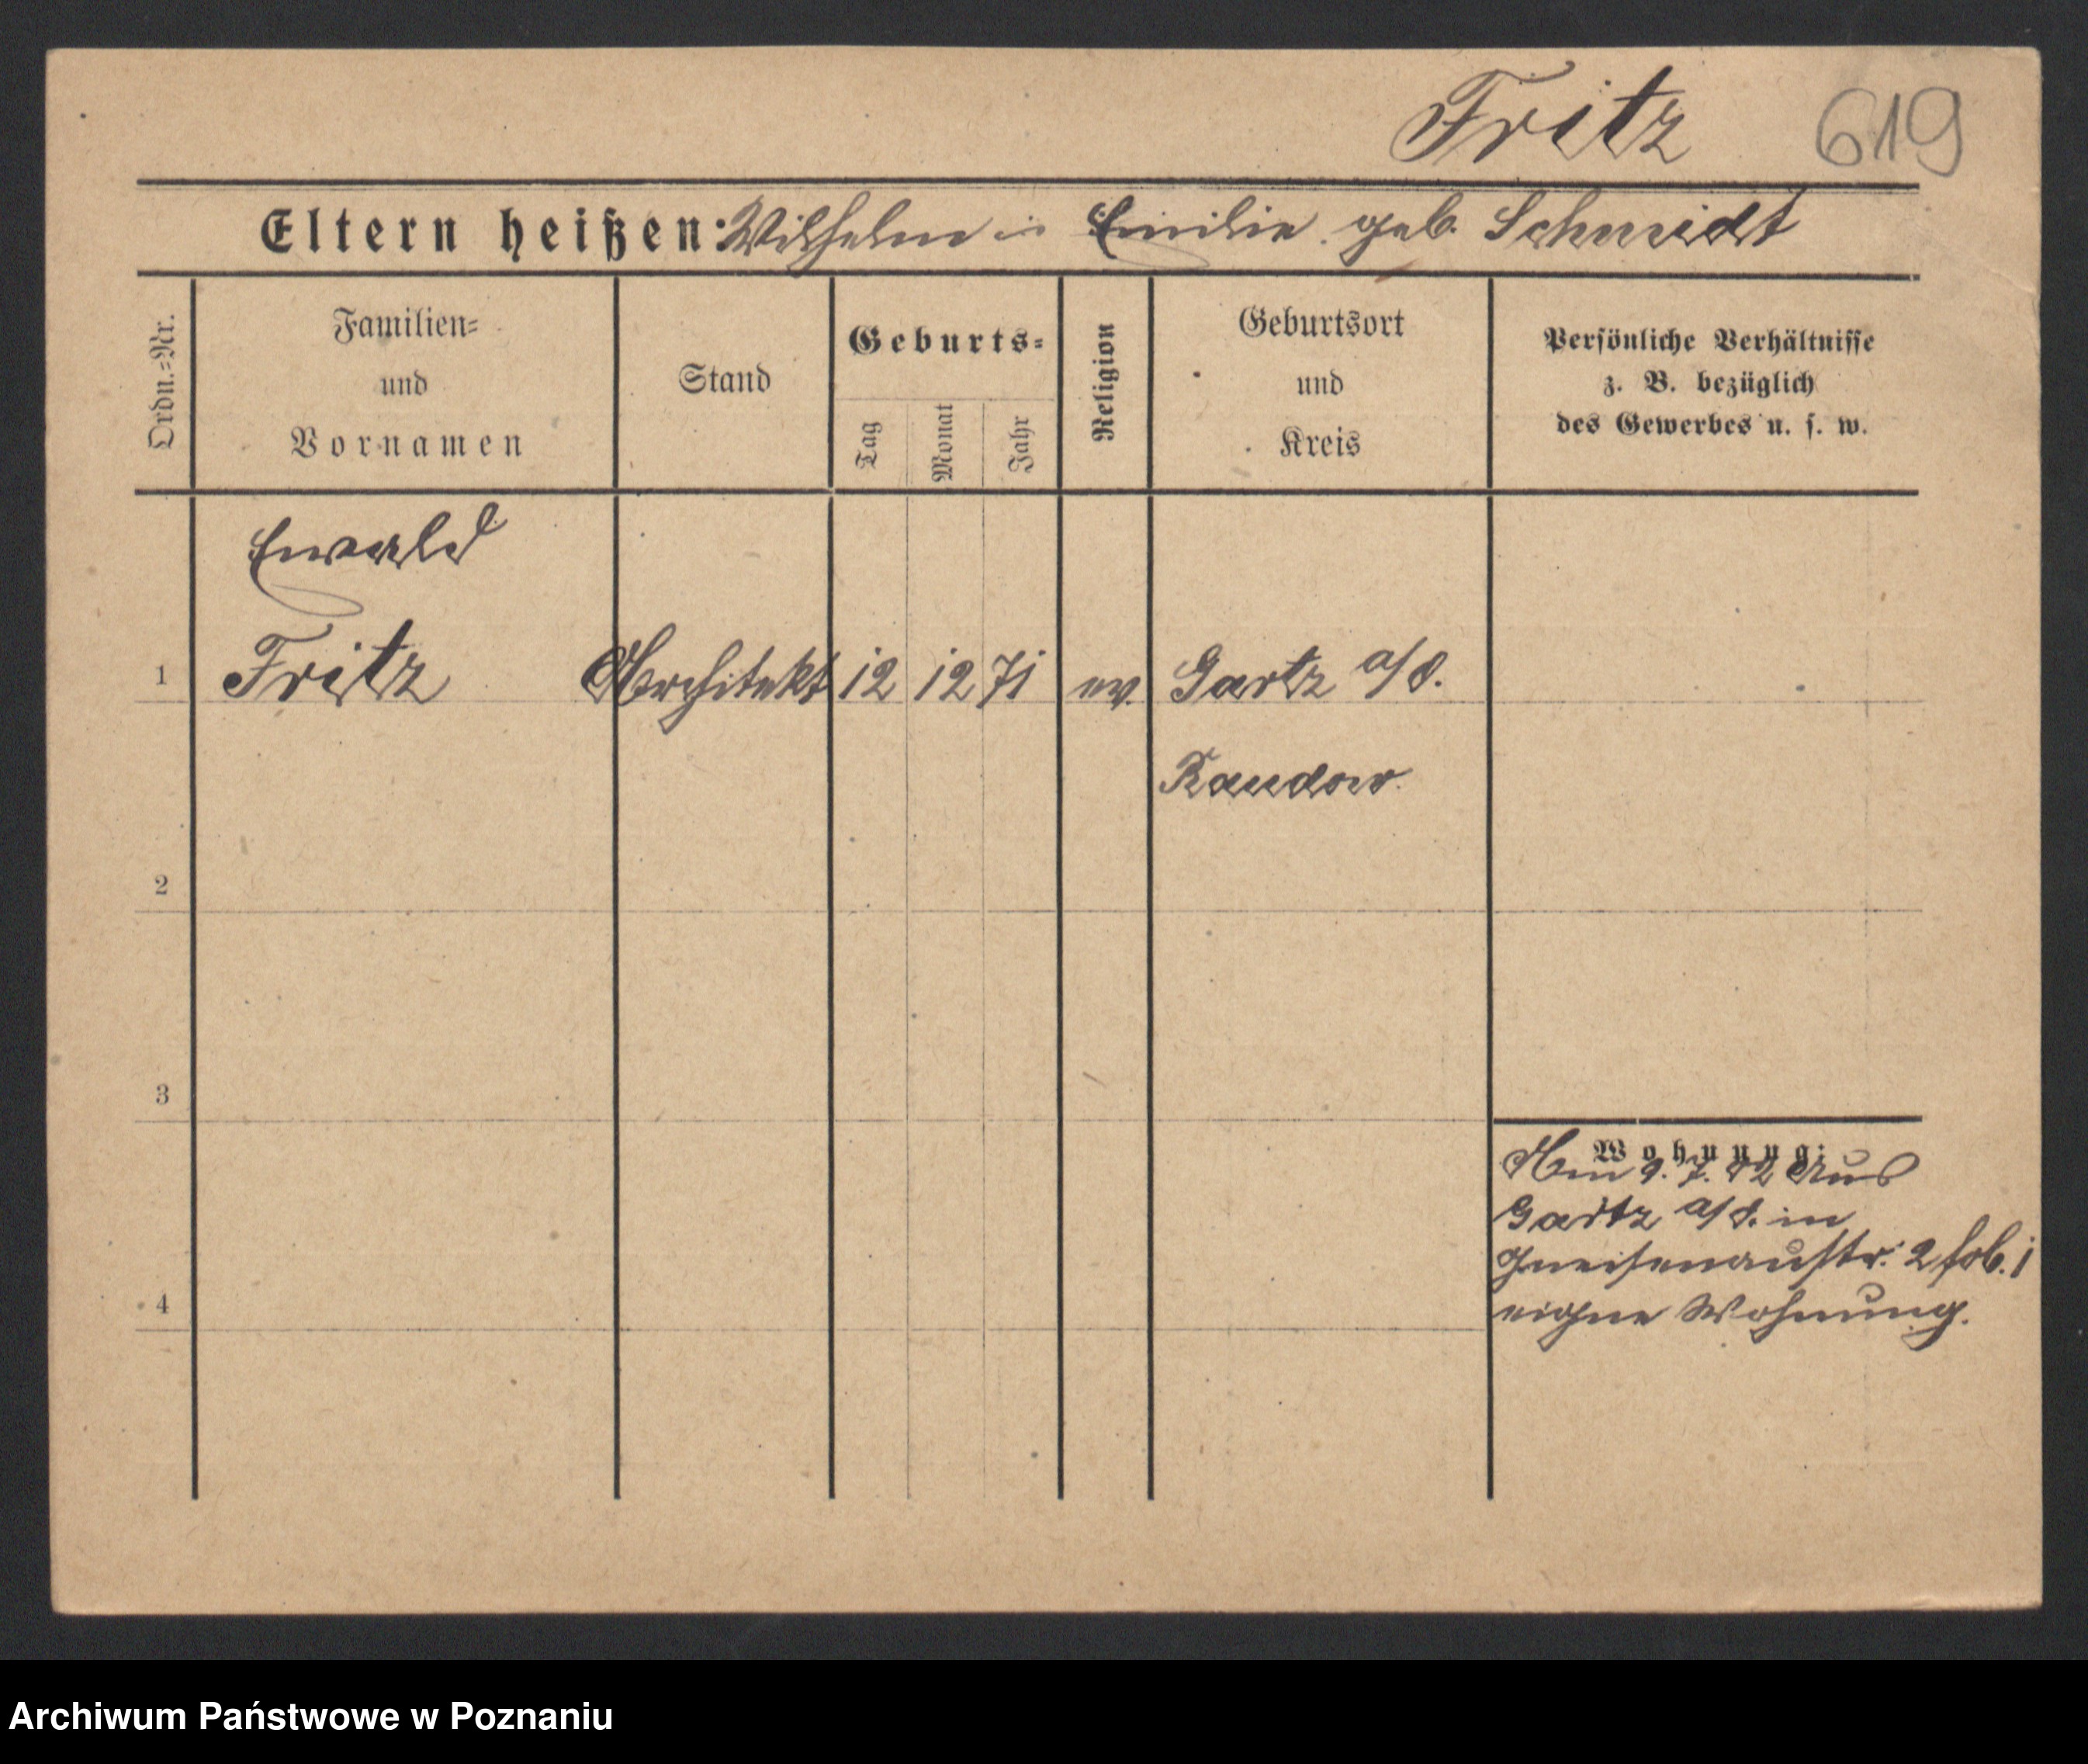 Fritz 619
Eltern heißen: Wilhelm u Emilie geb. Schmidt
Ordn.-Nr.
Familien-
und
Vornamen
Stand
Geburts-
Tag
Monat
Jahr
Religion
Geburtsort
und
Kreis
Persönliche Verhältnisse
z. B. bezüglich
des Gewerbes u. s. w.
Ewald
1 Fritz Architekt 12 12 71 ev. Gartz a/O.
Randow
2
3
Wohnung:
Am 9. 7. 12 aus
Gartz a/O. in
Gneisenaustr. 2
4 eigne Wohnung.
Archiwum Państwowe w Poznaniu